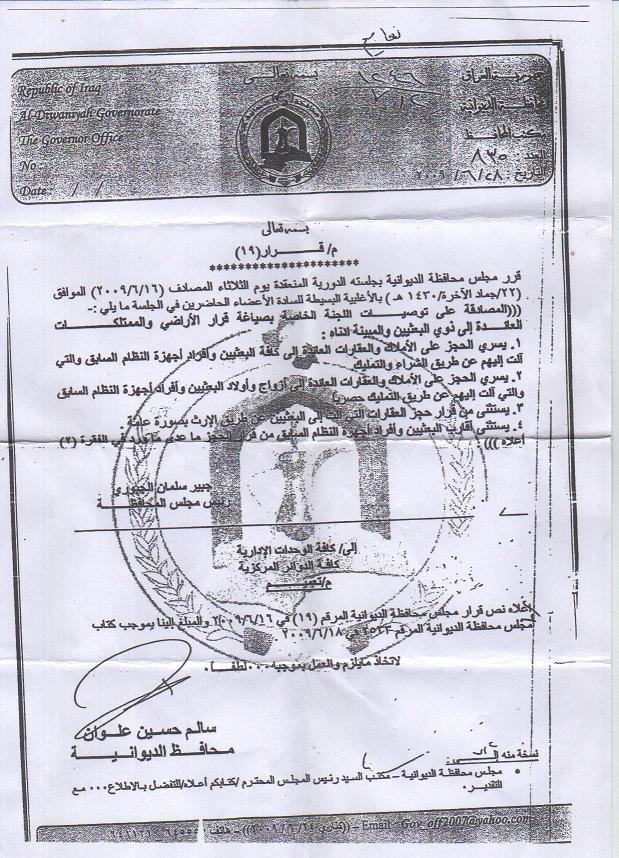 بسمه تعالى
جمهورية العراق
محافظة الديوانية
مكتب المحافظ
العدد: ٨٣٥
التاريخ: ٢٠٠٩/٦/٢٨
Republic of Iraq
Al-Diwaniyah Governorate
The Governor Office
No
Date / /
بسمه تعالى
م/ قـــرار(١٩)
********************
قرر مجلس محافظة الديوانية بجلسته الدورية المنعقدة يوم الثلاثاء المصادف (٢٠٠٩/٦/١٦) الموافق
(٢٢/جماد الآخرة/١٤٣٠ هـ) بالأغلبية البسيطة للسادة الأعضاء الحاضرين في الجلسة ما يلي :-
(((المصادقة على توصيات اللجنة الخاصة بصياغة قرار الأراضي والممتلكات
العائدة إلى ذوي البعثيين والمبينة أدناه :
١. يسري الحجز على الأملاك والعقارات العائدة إلى كافة البعثيين وأفراد أجهزة النظام السابق والتي
آلت إليهم عن طريق الشراء والتمليك
٢. يسري الحجز على الأملاك والعقارات العائدة إلى أزواج وأولاد البعثيين وأفراد أجهزة النظام السابق
والتي آلت إليهم عن طريق التمليك حصراً
٣. يستثنى من قرار حجز العقارات التي آلت إلى البعثيين عن طريق الإرث بصورة عامة.
٤. يستثنى أقارب البعثيين وأفراد أجهزة النظام السابق من قرار الحجز ما عدى ما ورد في الفقرة (٢)
أعلاه )))
جبير سلمان الجبوري
رئيس مجلس المحافظـــة
إلى/ كافة الوحدات الإدارية
كافة الدوائر المركزية
م/تعميـــم
أعلاه نص قرار مجلس محافظة الديوانية المرقم (١٩) في ٢٠٠٩/٦/١٦ والمبلغ إلينا بموجب كتاب
مجلس محافظة الديوانية المرقم في ٢٠٠٩/٦/١٨
لاتخاذ مايلزم والعمل بموجبه ... لطفاً .
سالم حسين علوان
محافظ الديوانيـــة
نسخة منه إلى:
• مجلس محافظة الديوانية – مكتب السيد رئيس المجلس المحترم /كتابكم أعلاه/للتفضل بالاطلاع... مع
التقدير.
Email – Gov_off2007@yahoo.com